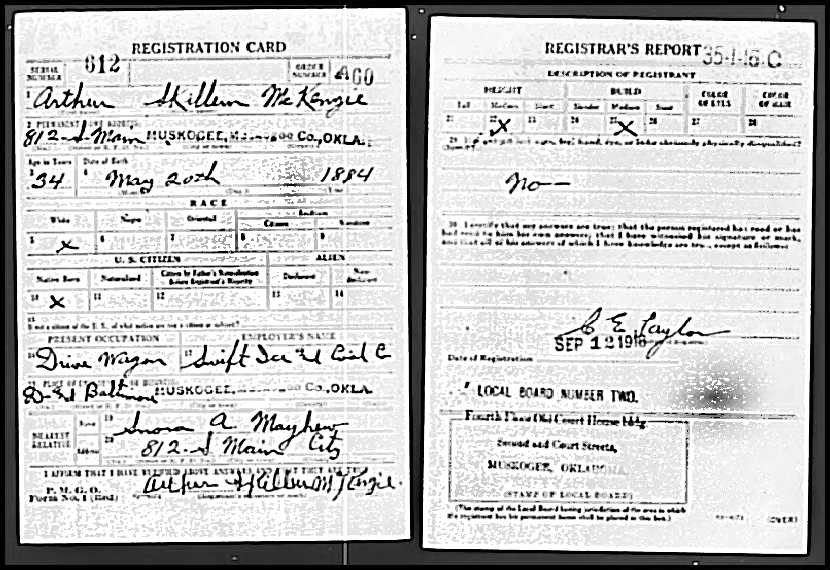 REGISTRATION CARD
SERIAL NUMBER 612 ORDER NUMBER A60
1 Arthur Skillern McKenzie
2 PERMANENT HOME ADDRESS:
812-S Main MUSKOGEE, Muskogee Co., OKLA.
Age in Years Date of Birth
3 34 4 May 20th 1884
RACE
White Negro Oriental Indian
Citizen
5 X 6 7 8 9
U. S. CITIZEN ALIEN
Native Born Naturalized Citizen by Father's Naturalization Before Registrant's Majority Declarant Non-declarant
10 X 11 12 13 14
15
If not a citizen of the U. S., of what nation are you a citizen or subject?
PRESENT OCCUPATION EMPLOYER'S NAME
Drive Wagon 17 Swift Ice
MUSKOGEE, Co., OKLA.
NEAREST RELATIVE
Name 19 A Mayhew
Address 20 812-S Main City
I AFFIRM THAT I HAVE VERIFIED ABOVE ANSWERS AND THAT THEY ARE TRUE
P. M. G. O.
Form No. 1 (Red) Arthur Skillern McKenzie
REGISTRAR'S REPORT 35-1-16 C
DESCRIPTION OF REGISTRANT
HEIGHT BUILD COLOR OF EYES COLOR OF HAIR
Tall Medium Short Slender Medium Stout
21 22 X 23 24 25 X 26 27 28
29 Has person lost arm, leg, hand, eye, or is he obviously physically disqualified?
(Specify.)
No-
30 I certify that my answers are true; that the person registered has read or has
had read to him his own answers; that I have witnessed his signature or mark,
and that all of his answers of which I have knowledge are true, except as follows:
C E Taylor
SEP 12 1918
Date of Registration
LOCAL BOARD NUMBER TWO,
Fourth Floor Old Court House bldg.
Second and Court Streets,
MUSKOGEE, OKLAHOMA.
(STAMP OF LOCAL BOARD)
(The stamp of the Local Board having jurisdiction of the area in which
the registrant has his permanent home shall be placed in this box.)
(OVER)